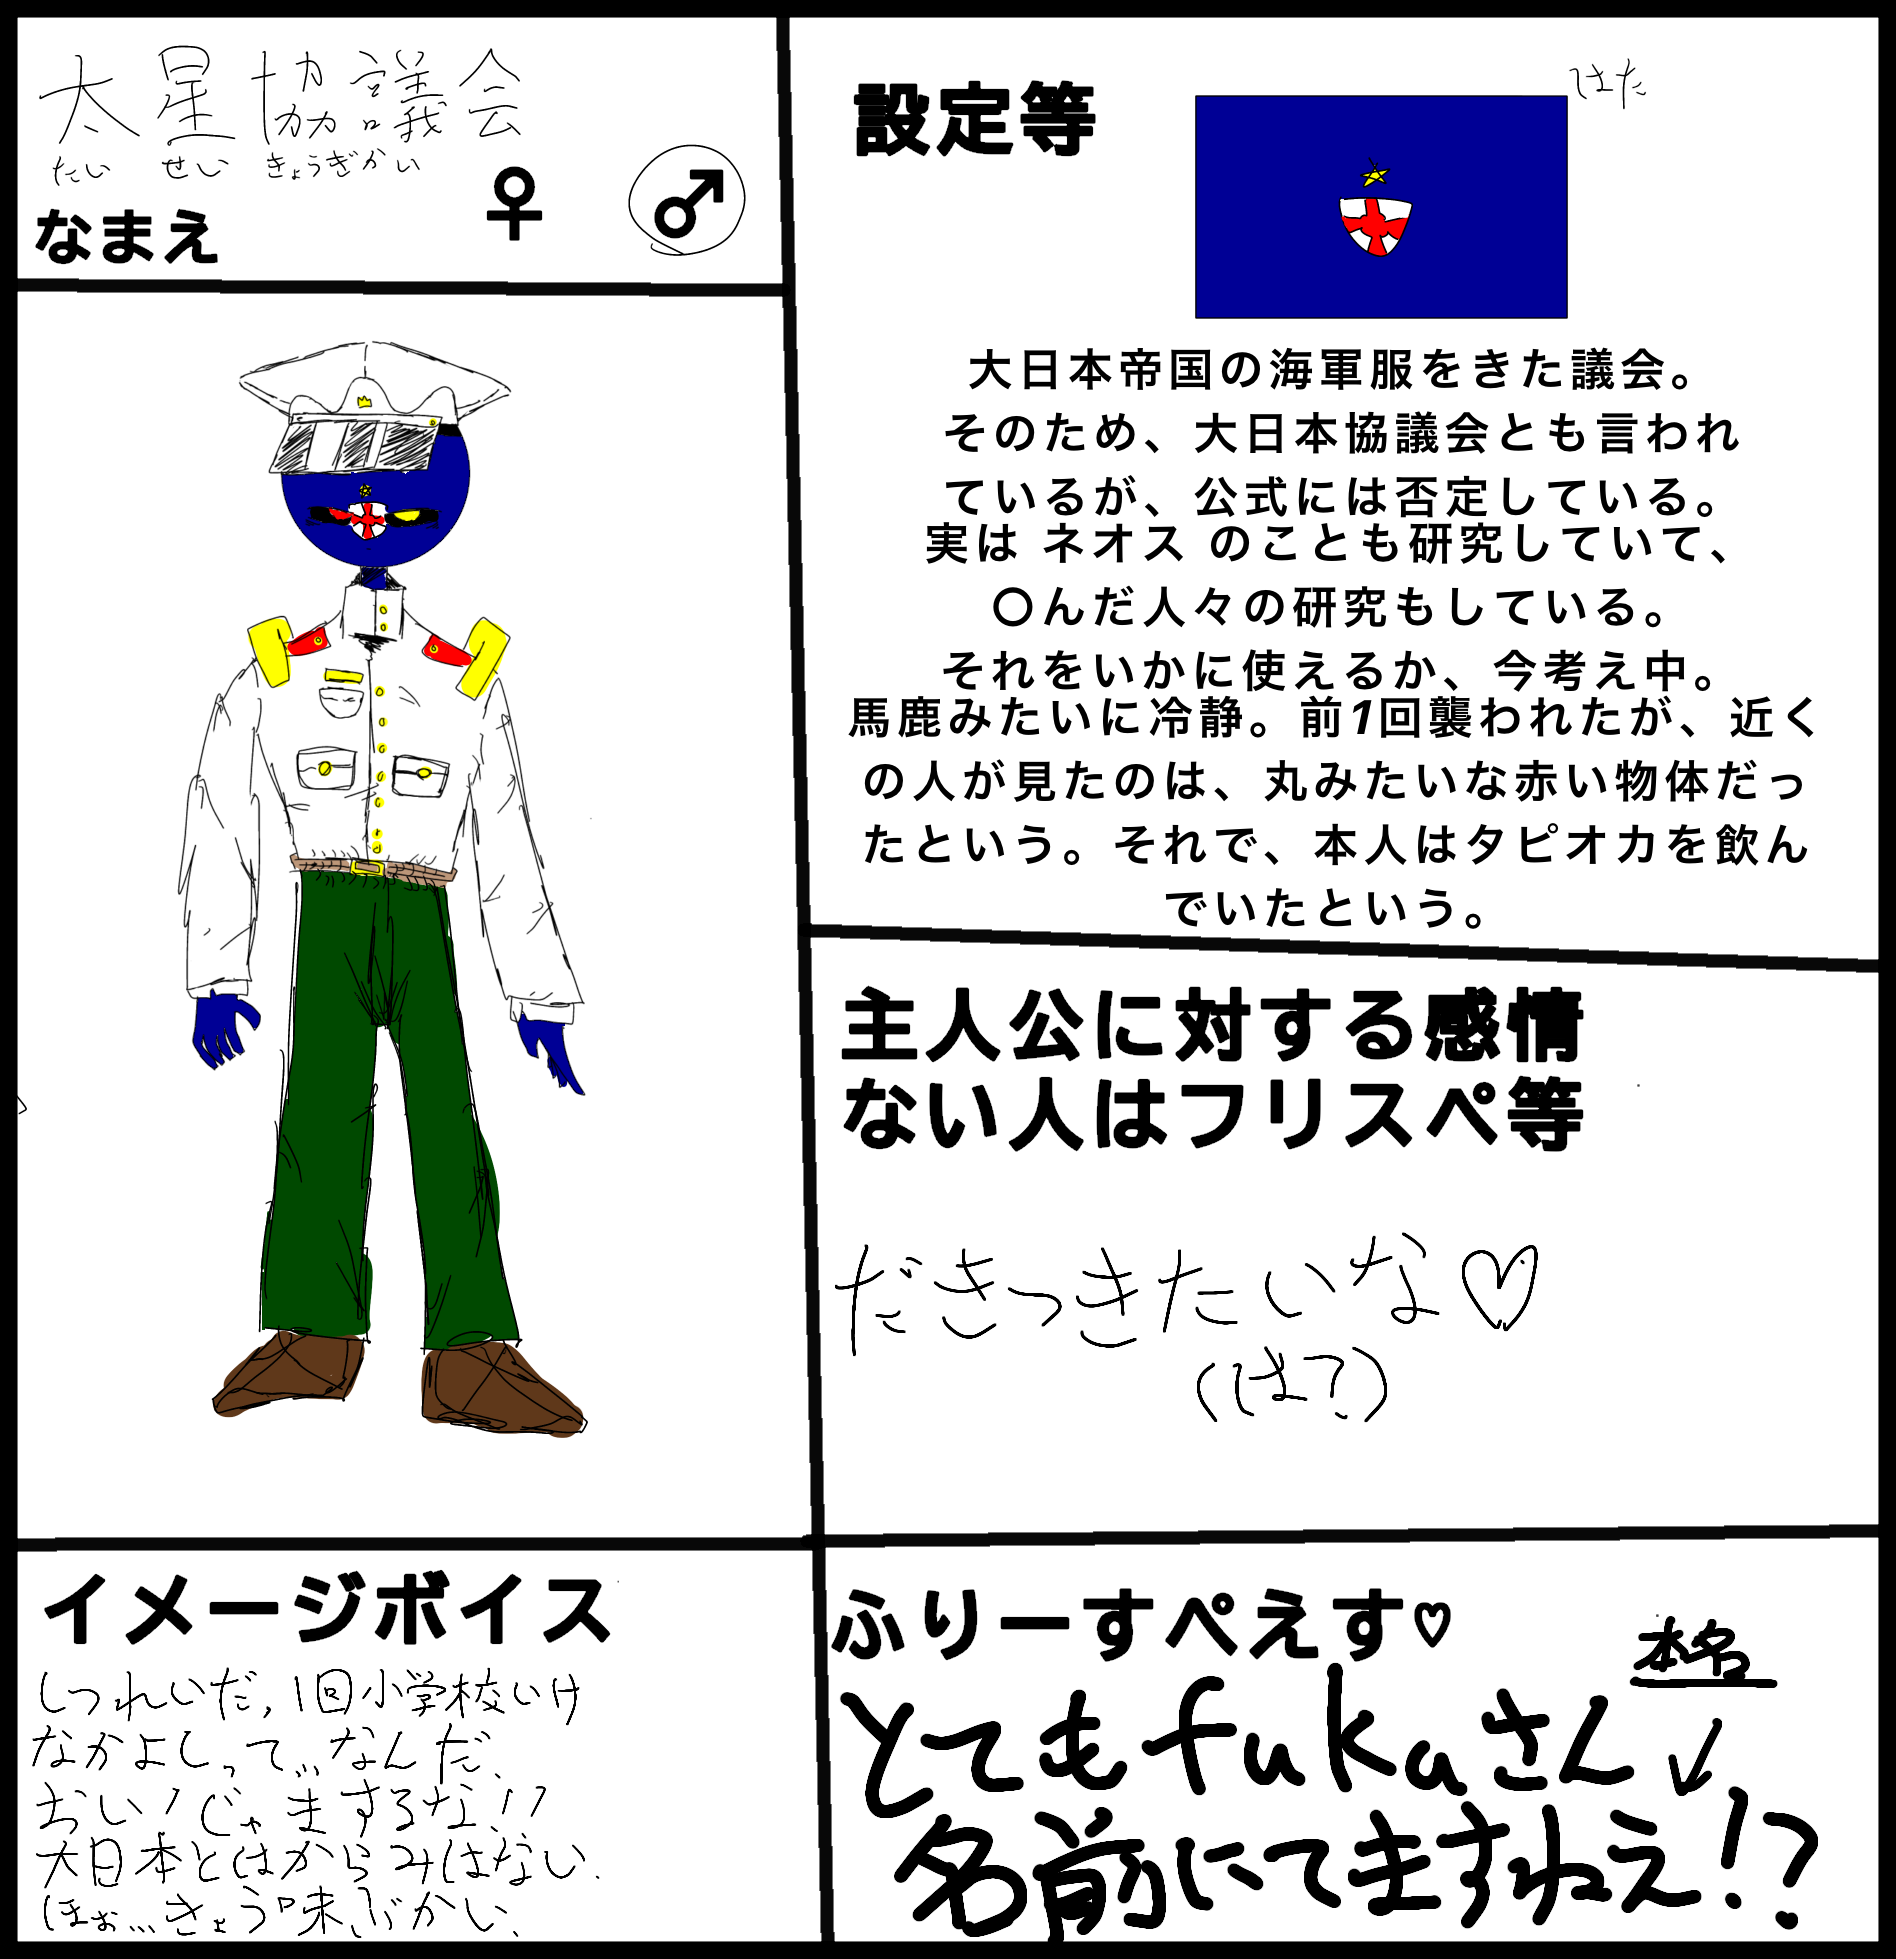 太星協議会
たい せい きょうぎかい
なまえ
♀ ♂
設定等
はた
大日本帝国の海軍服をきた議会。
そのため、大日本協議会とも言われ
ているが、公式には否定している。
実は ネオス のことも研究していて、
〇んだ人々の研究もしている。
それをいかに使えるか、今考え中。
馬鹿みたいに冷静。前1回襲われたが、近く
の人が見たのは、丸みたいな赤い物体だっ
たという。それで、本人はタピオカを飲ん
でいたという。
主人公に対する感情
ない人はフリスペ等
だきつきたいな♡
(は?)
イメージボイス
しつれいだ,1回小学校いけ
なかよしって…なんだ、
おい!じゃまするな!!
大日本とはからみはない.
ほぉ…きょう味ぶかい、
ふりーすぺえす♡
本名
↓
とてもfukaさん
名前にてますねえ!?